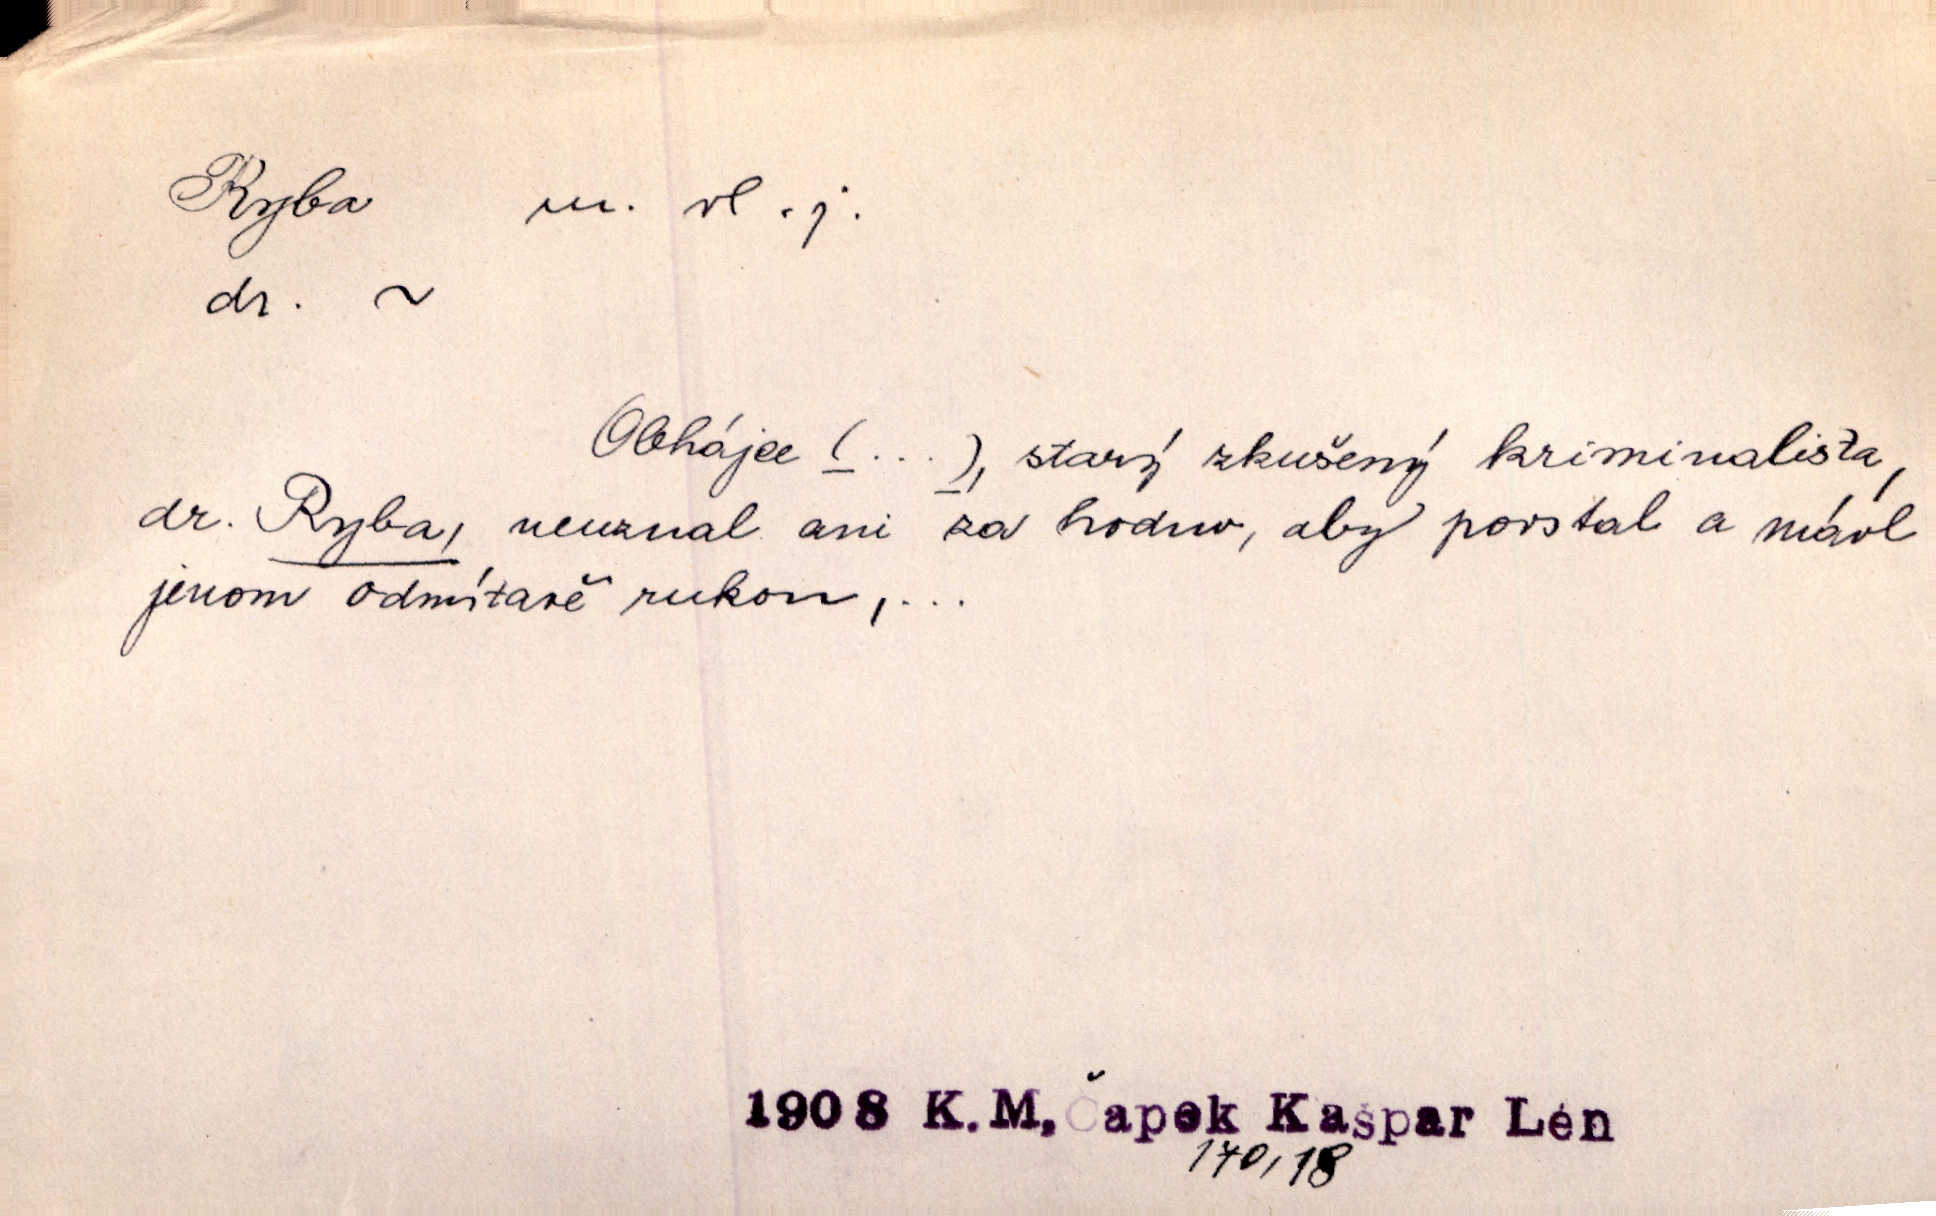 Ryba m. vl. j.
dr. ~
Obhájce (...), starý zkušený kriminalista,
dr. Ryba, neuznal ani za hodno, aby povstal a mávl
jenom odmítavě rukou, ...
1908 K.M, Čapek Kašpar Lén
170, 18